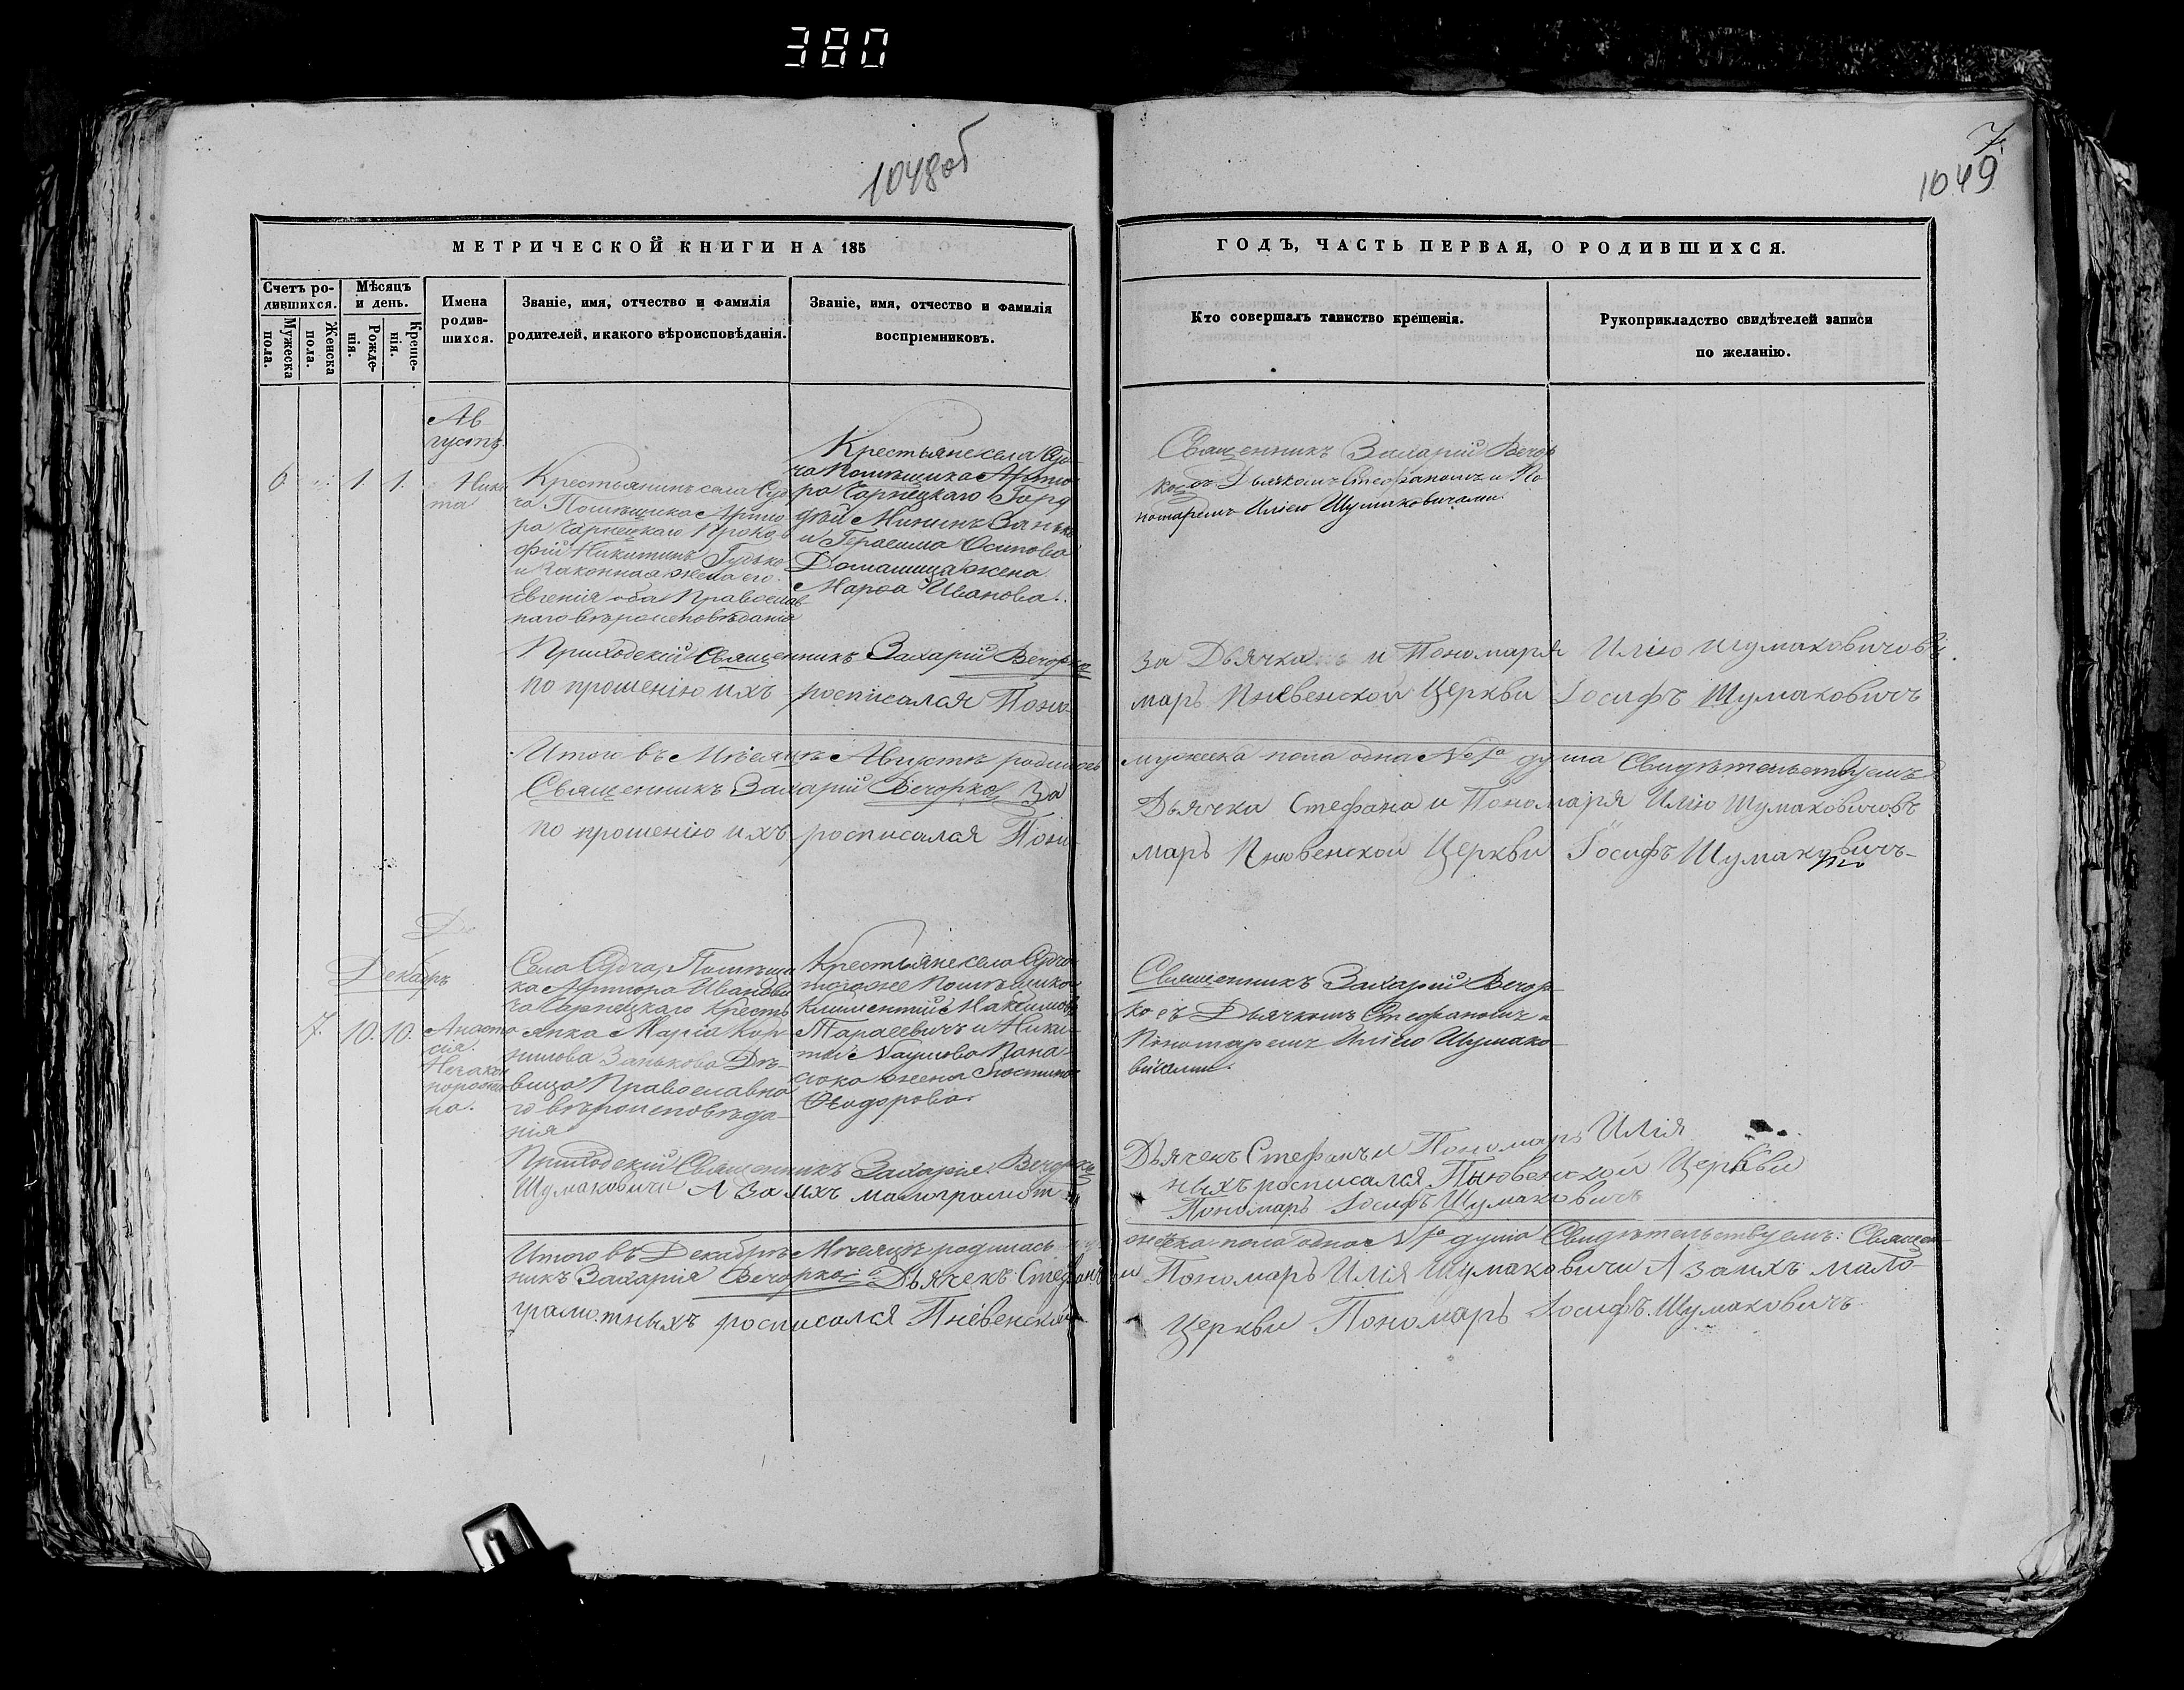 380
1048об
7.
1049
МЕТРИЧЕСКОЙ КНИГИ НА 185
ГОДЪ, ЧАСТЬ ПЕРВАЯ, О РОДИВШИХСЯ.
Счетъ ро-
дившихся.
Мужеска
пола.
Женска
пола.
Мѣсяцъ
и день.
Рожде-
нія.
Креще-
нія.
Имена
родив-
шихся.
Званіе, имя, отчество и фамилія
родителей, и какого вѣроисповѣданія.
Званіе, имя, отчество и фамилія
воспріемниковъ.
Кто совершалъ таинство крещенія.
Рукоприкладство свидѣтелей записи
по желанію.
Ав
густъ.
6
1.
1.
Ники
та
Крестьянинъ села Суд
ча Помѣщика Арту
ра Чарнецкаго Проко
фій Никитинъ Гудько
и законная жена его
Евгенія оба Православ
наго вѣроисповѣданія
Крестьяне села Суд
ча Помѣщика Арту
ра Чарнецкаго Горд
ѣй Мининъ Занько
и Герасима Осипова
Домашица жена
Марѳа Иванова.
Священникъ Захарій Вечор
ко съ Дьячкомъ Стефаномъ и По
номаремъ Иліею Шумаковичами.
Приходскій Священникъ Захарій Вечорко
за Дьячка и Пономаря Илію Шумаковичовъ
по прошенію ихъ росписался Поно-
маръ Пневенской Церкви Іосифъ Шумаковичъ
Итого въ Мѣсяцѣ Августѣ родилась
мужеска пола одна № 1а душа Свидѣтельствуемъ
Священникъ Захарій Вечорко За
Дьячка Стефана и Пономаря Илію Шумаковичовъ
по прошенію ихъ росписался Поно-
маръ Пневенской Церкви Іосифъ Шумаковичъ-
Де
Декабръ
7.
10.
10.
Анаста
сія.
Незакон
норожден
на.
Села Судча, Помѣщи
ка Артюра Иванови
ча Чарнецкаго Кресть
янка Марія Кор-
нилова Занькова Дѣ-
вица Православна
го вѣроисповѣда-
нія
Крестьяне села Судча
тогоже Помѣщика
Климентій Максимовъ
Тарасевичъ и Ники-
ты Наумова Пана-
сюка жена
Ѳеодорова.
Священникъ Захарій Вечор-
ко съ Дьячкомъ Стефаномъ и
Пономаремъ Иліею Шумако-
вичами.
Приходскій Священникъ Захарія Вечорко
Дьячекъ Стефанъ и Пономаръ Илія
Шумаковичи А за ихъ малограмот
ныхъ росписался Пневенской Церкви
Пономаръ Іосифъ Шумаковичъ
Итого въ Декабрѣ Мѣсяцѣ родилась
женска пола одна № 1а душа Свидѣтельствуемъ: Священ-
никъ Захарія Вечорко: Дьячекъ Стефанъ
и Пономаръ Илія Шумаковичи А за ихъ мало-
грамотныхъ росписался Пневенской
Церкви Пономаръ Іосифъ Шумаковичъ